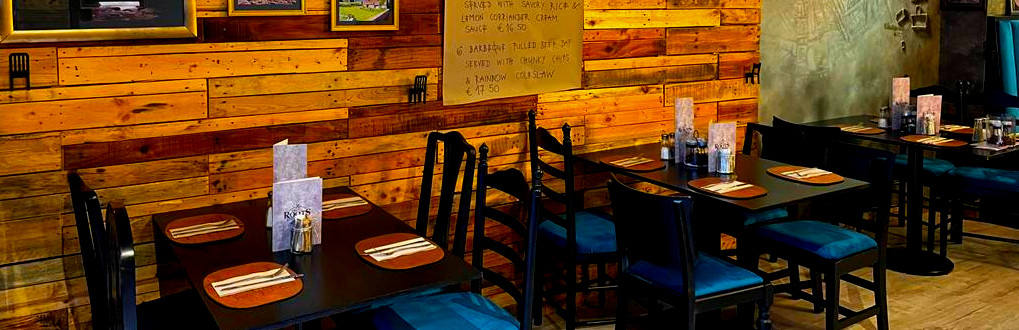 SERVED WITH SAVORY RICE &
LEMON CORRIANDER CREAM
SAUCE €16.50
6 BARBEQUE PULLED BEEF BAP
SERVED WITH CHUNKY CHIPS
& RAINBOW COLESLAW
€17.50
ROOTS